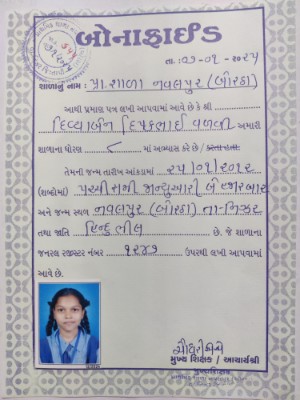 બોનાફાઈડ
તા.: ૨૭-૦૧-૨૦૨૫
શાળાનું નામ : પ્રા.શાળા નવલપુર (બોરઠા)
આથી પ્રમાણ પત્ર લખી આપવામાં આવે છે કે શ્રી
દિવ્યાબેન દિપકભાઈ વળવી અમારી
શાળાના ધોરણ ૮ માં અભ્યાસ કરે છે/કરતા હતા.
તેમની જન્મ તારીખ આંકડામાં ૨૫/૦૧/૨૦૧૨
(શબ્દોમાં) પચ્ચીસમી જાન્યુઆરી બે હજાર બાર
અને જન્મ સ્થળ નવલપુર (બોરઠા) તા-નિઝર
તથા જાતિ હિન્દુ ભીલ છે. જે શાળાના
જનરલ રજીસ્ટર નંબર ૧૨૪૭ ઉપરથી લખી આપવામાં
આવે છે.
મુખ્ય શિક્ષક / આચાર્યશ્રી